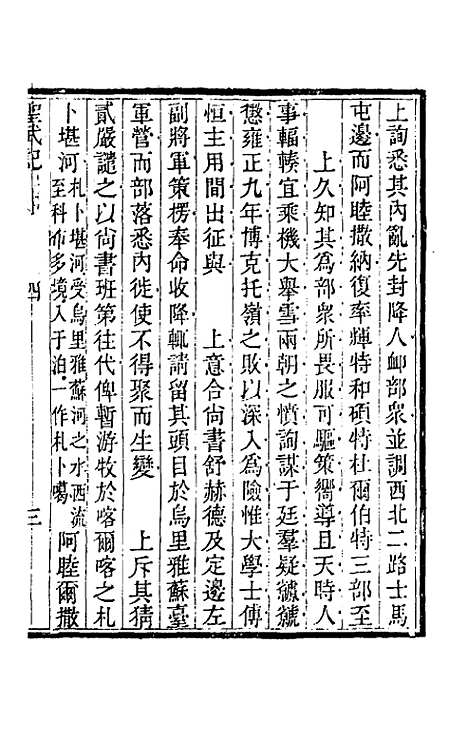 上詢悉其內亂先封降人卹部眾並調西北二路士馬
屯邊而阿睦撒納復率輝特和碩特杜爾伯特三部至
上久知其為部衆所畏服可驅策嚮導且天時人
事輻輳宜乘機大舉雪兩朝之憤詢謀于廷羣疑虩虩
懲雍正九年博克托嶺之敗以深入為險惟大學士傅
恒主用間出征與　上意合尚書舒赫德及定邊左
副將軍策楞奉命收降輒請留其頭目於烏里雅蘇臺
軍營而部落悉內徙使不得聚而生變　上斥其猜
貳嚴譴之以尚書班第往代俾暫游牧於喀爾喀之札
卜堪河札卜堪河受烏里雅蘇河之水西流至科布多境入于泊一作札卜噶阿睦爾撒
聖武記　四　三